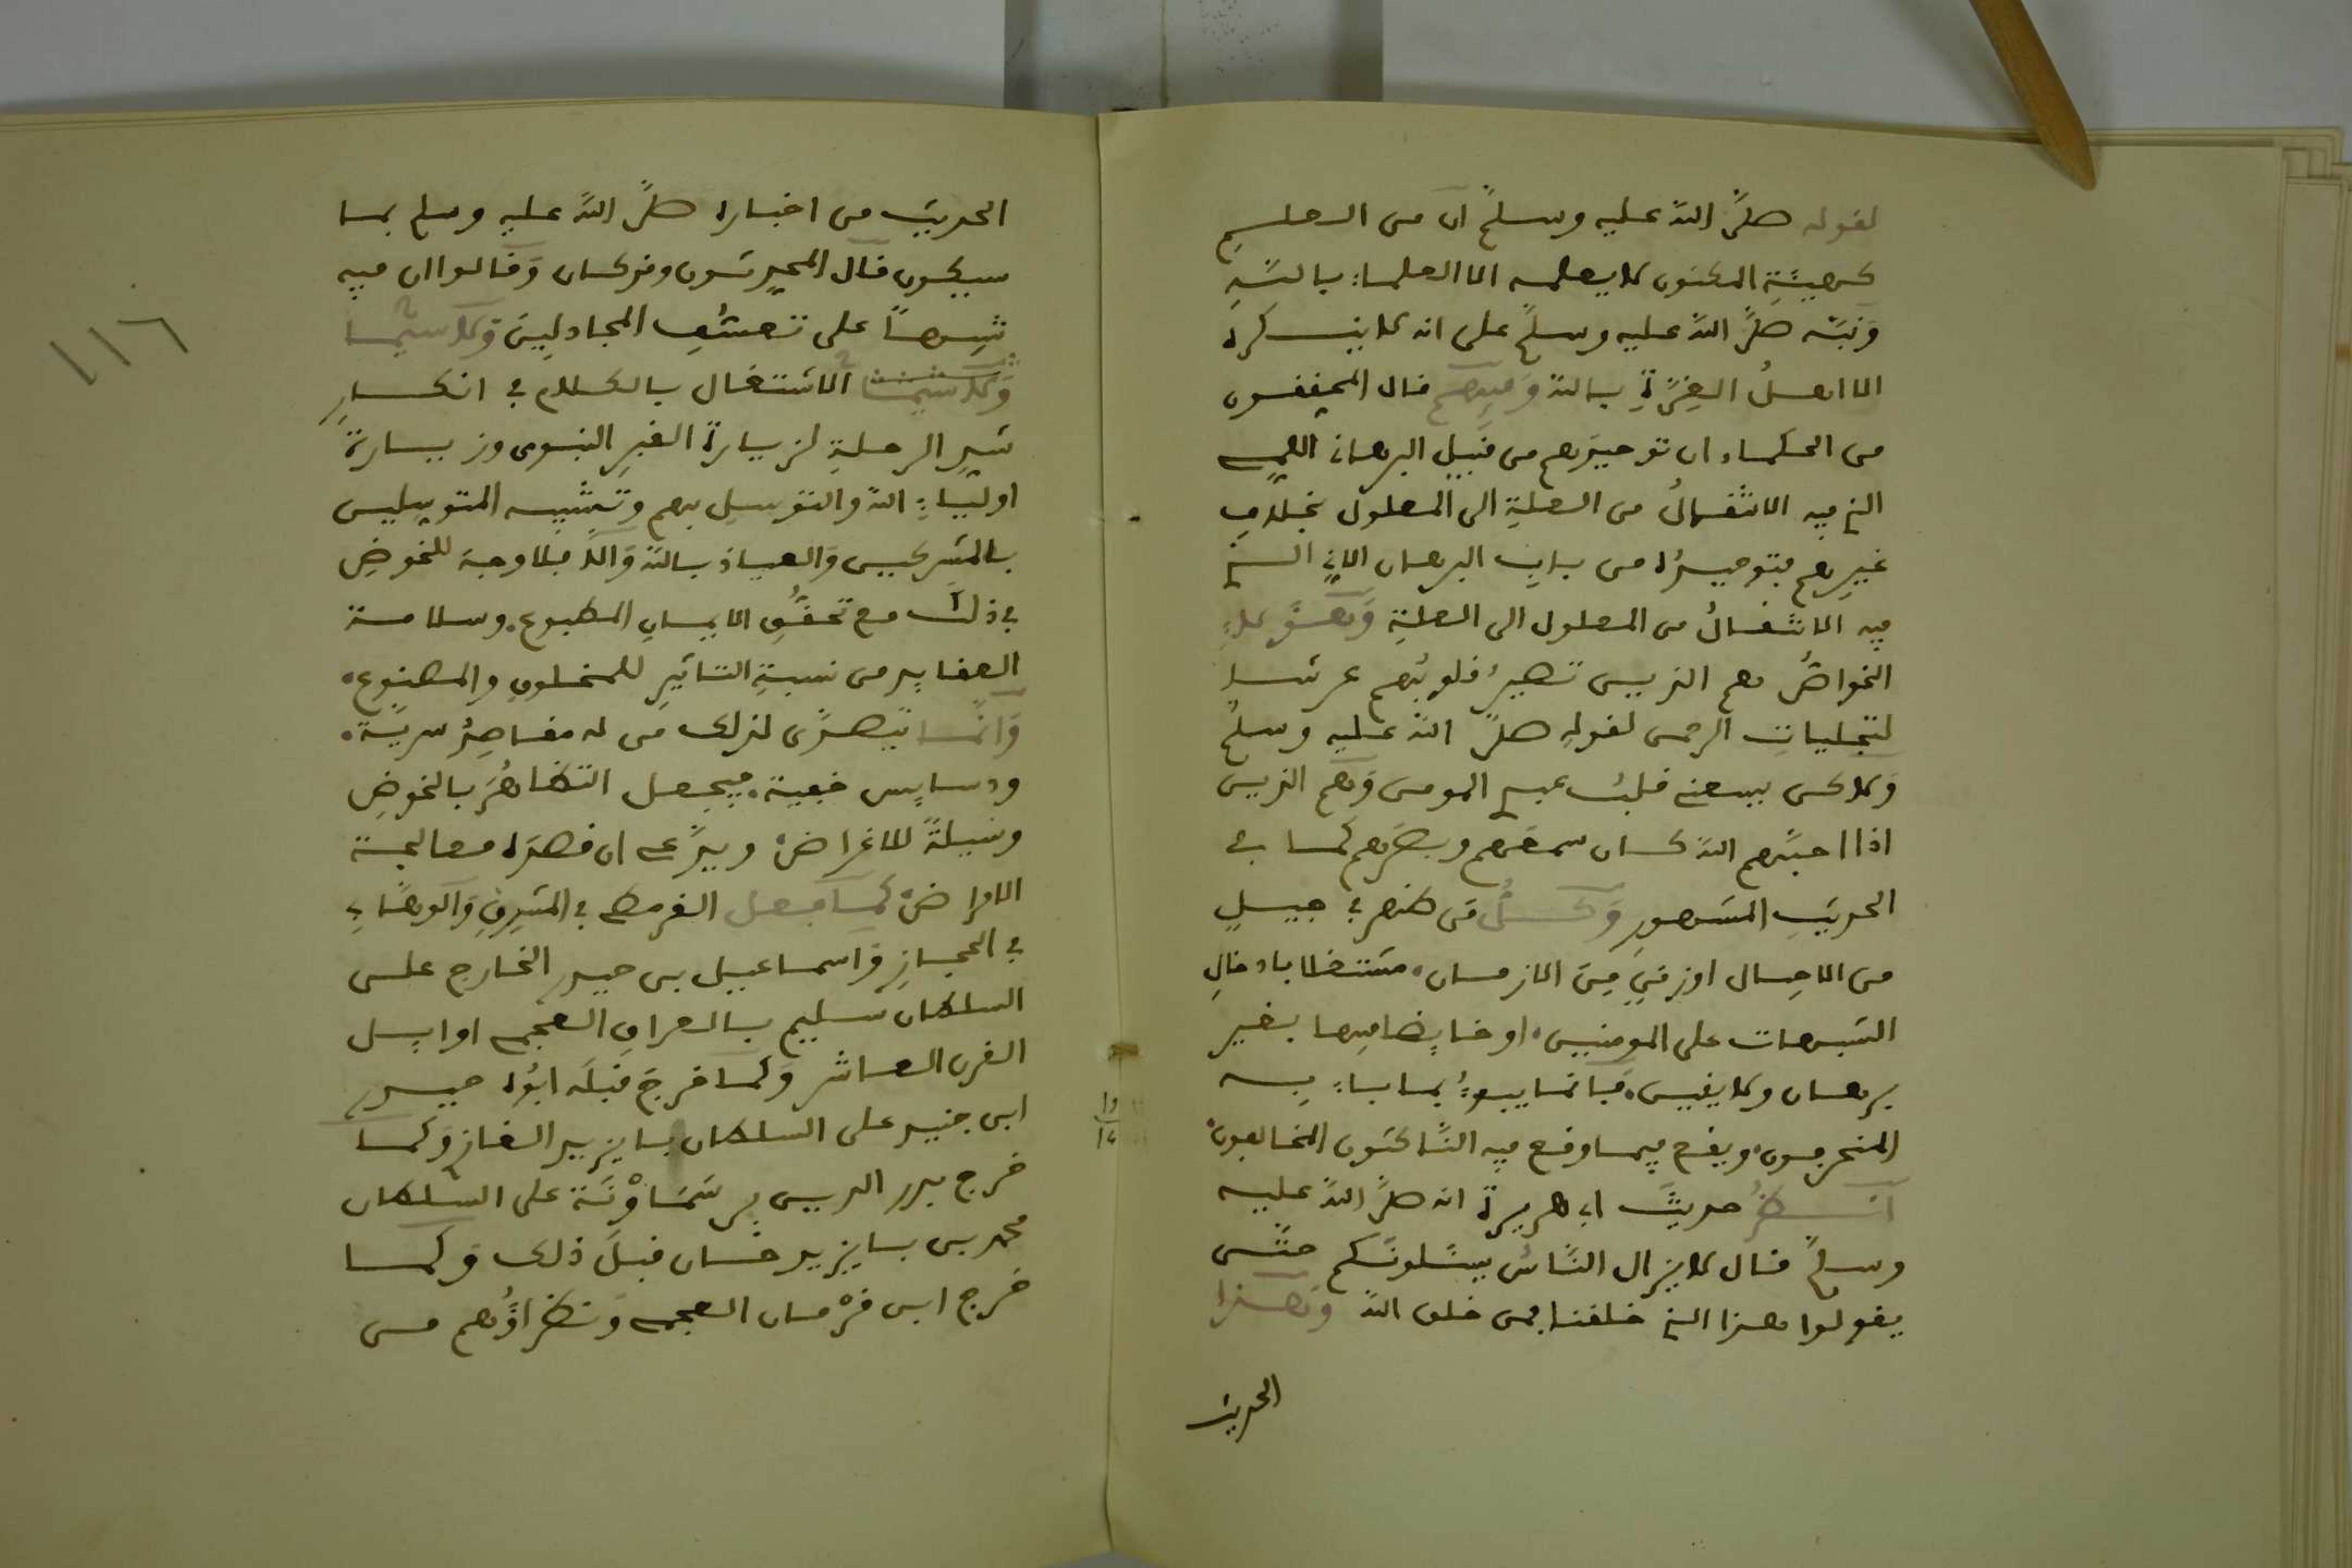 لقوله صلى الله عليه وسلم ان من العلم
كهيئة المكنون لا يعلمه الا العلماء بالله
ونبه صلى الله عليه وسلم على انه لا ينكره
الا اهل الغرة بالله وفيهم قال المحققون
من الحكماء ان توحيدهم من قبيل البرهان اللمي
الذي فيه الانتقال من العلة الى المعلول بخلاف
غيرهم فتوحيده من باب البرهان الاني الذي
فيه الانتقال من المعلول الى العلة وهؤلاء
الخواص هم الذين تصير قلوبهم عرشا
لتجليات الرحمن لقوله صلى الله عليه وسلم
ولاكن يسعني قلب عبدي المومن وهم الذين
اذا احبهم الله كان سمعهم وبصرهم كما في
الحديث المشهور وكل من ظهر في جيل
من الاجيال او زمن من الازمان، مشتغلا بادخال
الشبهات على المومنين، او خايضا فيها بغير
برهان ولا يقين، فانما يبوء بما باء به
المنحرفون، ويقع فيما وقع فيه الناكثون المخالفون،
انظر حديث ابي هريرة انه صلى الله عليه
وسلم قال لا يزال الناس يسئلونكم حتى
يقولوا هذا الله خلقنا فمن خلق الله وهذا
الحديث
الحديث من اخباره صلى الله عليه وسلم بما
سيكون قال المحدثون وقد كان وقالوا ان فيه
تنبيها على تعسف المجادلين ولا سيما
ولا سيما الاشتغال بالكلام في انكار
شد الرحلة لزيارة القبر النبوي وزيارة
اولياء الله والتوسل بهم وتشبيه المتوسلين
بالمشركين والعياذ بالله والا فلا وجه للخوض
في ذلك مع تحقق الايمان المطبوع، وسلامة
العقايد من نسبة التاثير للمخلوق والمصنوع،
وانما يتصدى لذلك من له مقاصد سرية،
ودسايس خفية، فيجعل التظاهر بالخوض
وسيلة للاغراض، ويدعي ان قصده معالجة
الامراض، كما فعل القرمطي في المشرق والوهابي
في الحجاز واسماعيل بن حيدر الخارج على
السلطان سليم بالعراق العجمي اوايل
القرن العاشر وكما خرج قبله ابوه حيدر
ابن جنيد على السلطان بايزيد الغازي وكما
خرج بدر الدين بر سماونة على السلطان
محمد بن بايزيد خان قبل ذلك وكما
خرج ابن قرمان العجمي ونظراؤهم من
١١٦